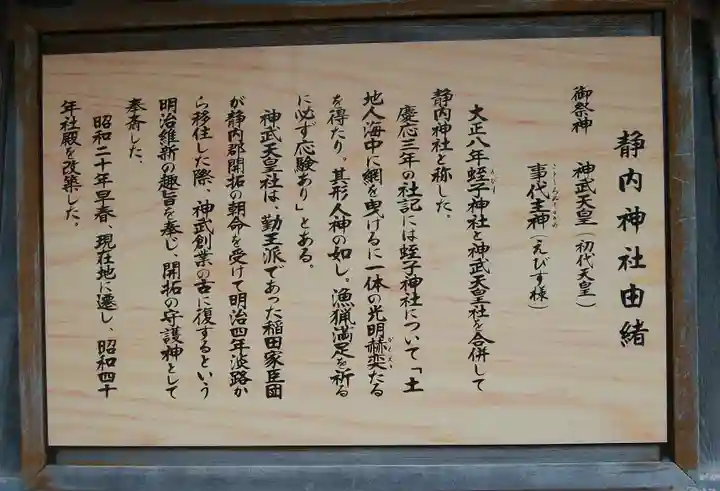 静内神社由緒
御祭神　神武天皇（初代天皇）
事代主神（えびす様）
ことしろぬしのかみ
大正八年蛭子神社と神武天皇社を合併して
えびす
静内神社と称した。
慶応三年の社記には蛭子神社について「土
地人海中に網を曳けるに一体の光明赫奕たる
かくえき
を得たり。其形人神の如し。漁猟満足を祈る
に必ず応験あり」とある。
神武天皇社は、勤王派であった稲田家臣団
が静内郡開拓の朝命を受けて明治四年淡路か
ら移住した際、神武創業の古に復するという
明治維新の趣旨を奉じ、開拓の守護神として
奉斎した、
昭和二十年早春、現在地に遷し、昭和四十
年社殿を改築した。